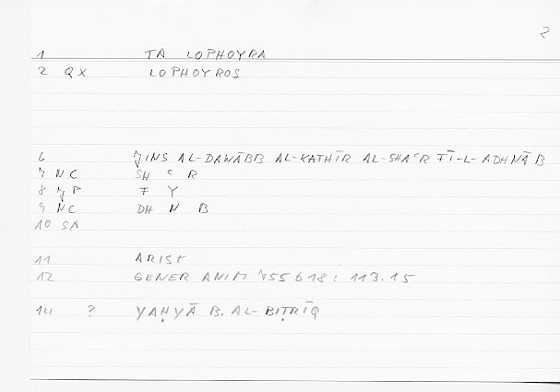 2
1 TA LOPHOYRA
2 QX LOPHOYROS
6 JINS AL-DAWĀBB AL-KATHĪR AL-SHAʿR FĪ-L-ADHNĀB
7 NC SH ʿ R
8 JP F Y
9 NC DH N B
10 SA
11 ARIST
12 GENER ANIM 755 b 18 : 113.15
14 ? YAḤYĀ B. AL-BIṬRĪQ